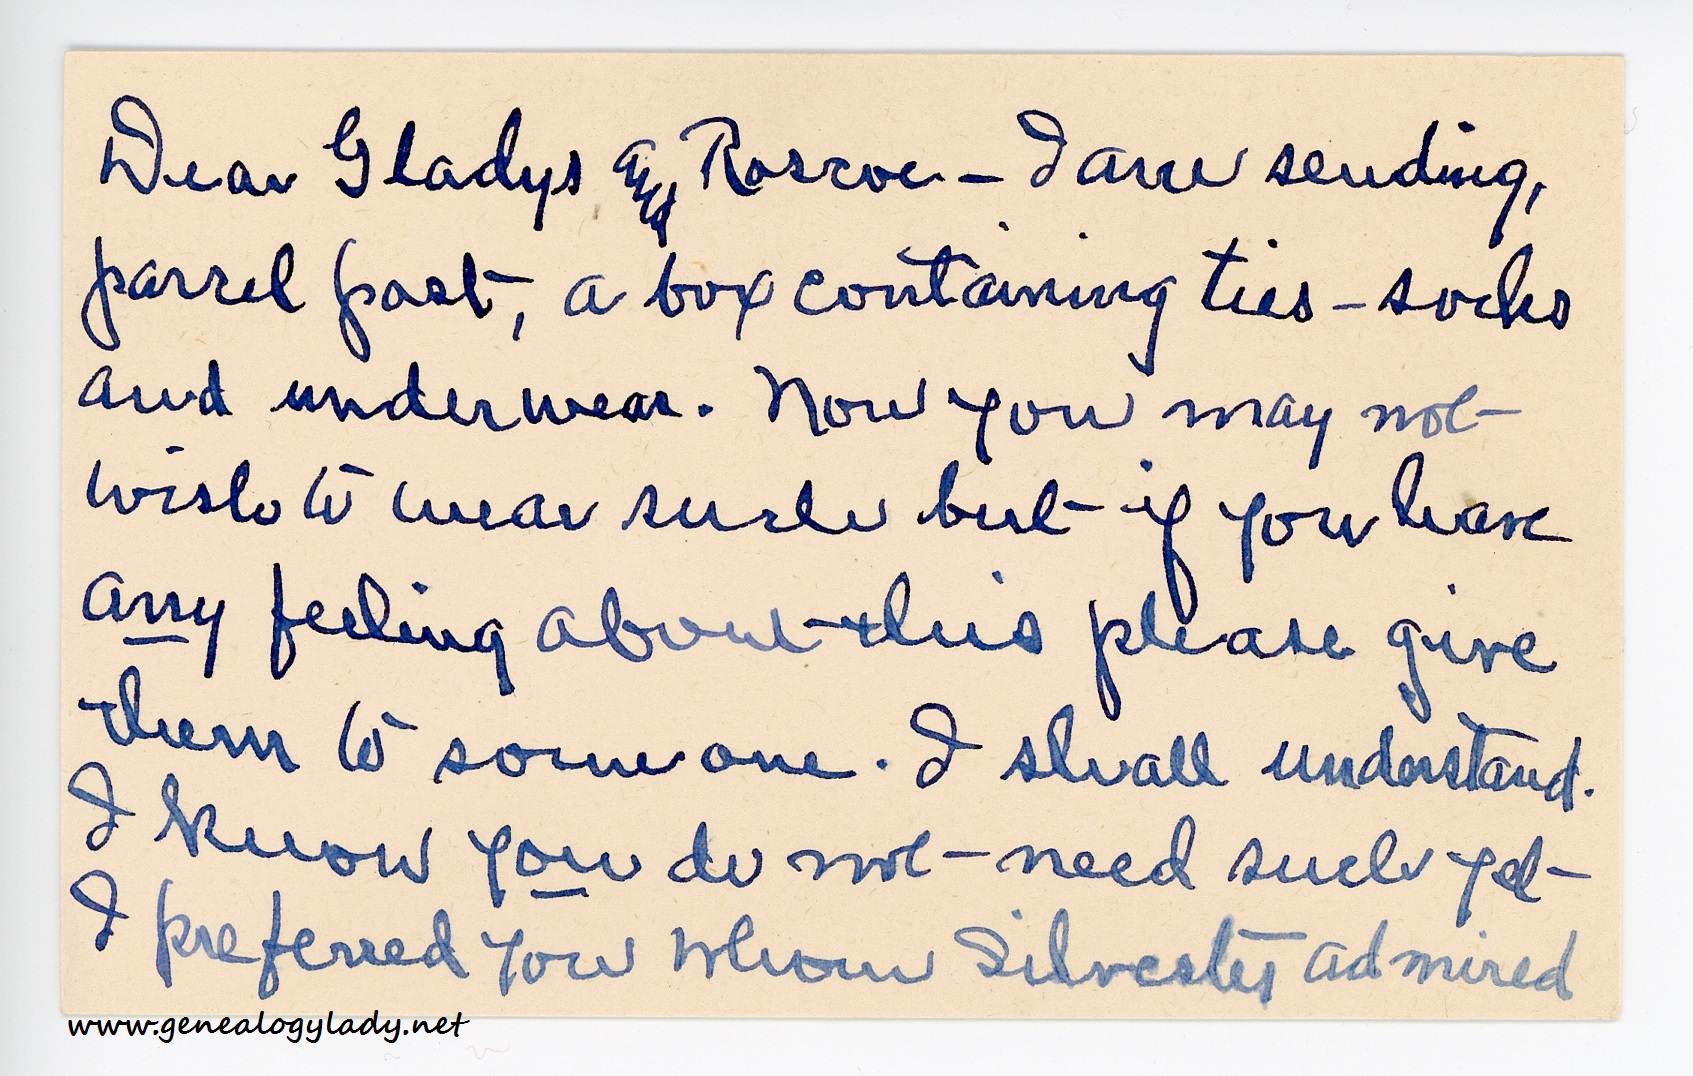 Dear Gladys & Roscoe – I am sending,
parcel post, a box containing ties – socks
and underwear. Now you may not
wish to wear such but if you have
any feeling about this please give
them to some one. I shall understand.
I know you do not need such yet
I preferred you whom Silvester admired
www.genealogylady.net